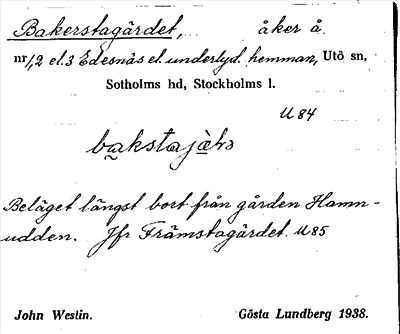 Bakerstagärdet, åker å
nr 1,2 el. 3 Edesnäs el. underlyd. hemman, Utö sn,
Sotholms hd, Stockholms l.
U 84
Beläget längst bort från gården Hamn-
udden. Jfr Främstagärdet. U85
John Westin. Gösta Lundberg 1938.